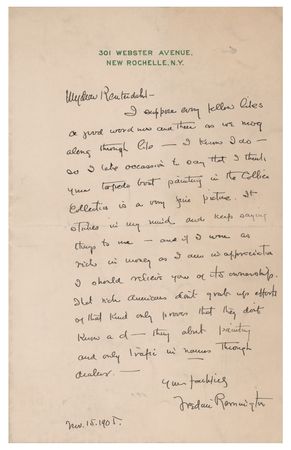 301 WEBSTER AVENUE,
NEW ROCHELLE, N.Y.
My dear Reuterdahl —
I suppose every fellow likes
a good word now and then as we mog
along through life — I know I do —
so I take occasion to say that I think
your torpedo boat painting in the Collier
Collection is a very fine picture. It
sticks in my mind and keeps saying
things to me — and if I were as
rich in money as I am in appreciation
I should relieve you of its ownership.
That rich Americans don't grab up efforts
of that kind only proves that they don't
know a d— thing about painting
and only traffic in names through
dealers. —
Yours faithfully
Frederic Remington
Nov. 15. 1905.